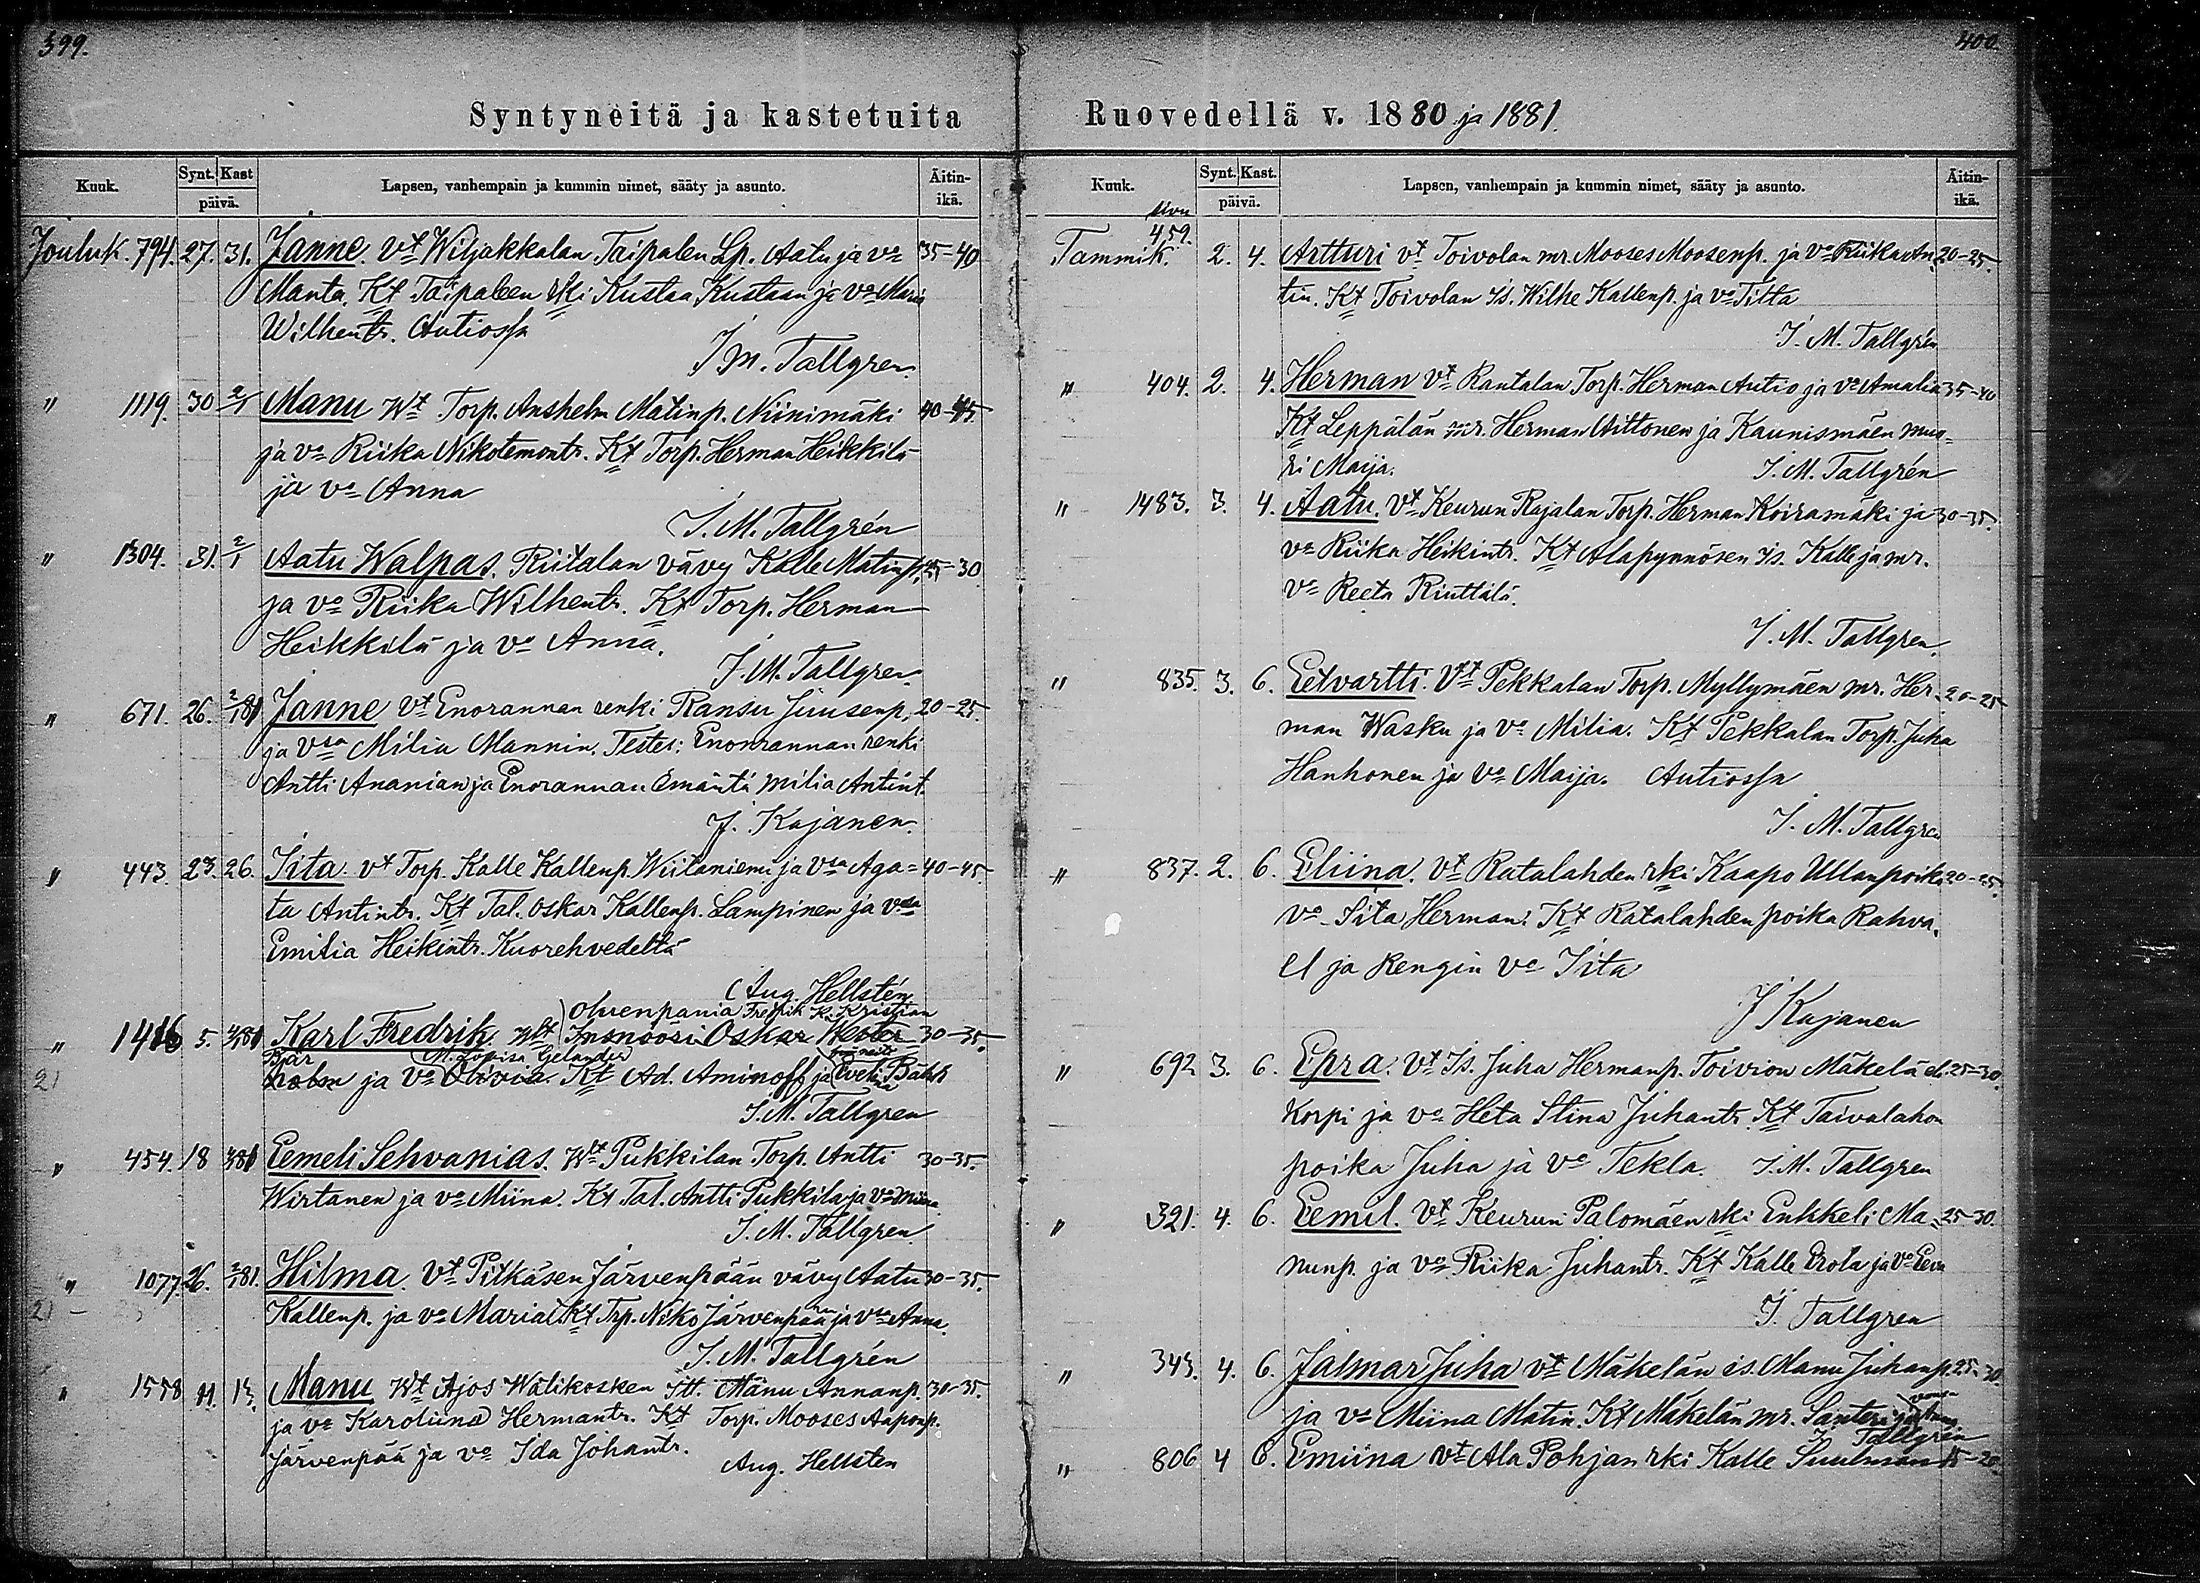 399.
Syntyneitä ja kastetuita
Kuuk. Synt. Kast päivä. Lapsen, vanhempain ja kummin nimet, sääty ja asunto. Äitin-ikä.
Jouluk. 794. 27. 31. Janne. vt Wiljakkalan Taipalen Lp. Aatu ja va 35-40
Manta. Kt Taipaleen rki Kustaa Kustaan ja va Maria
Wilhentr. Autiossa
J. M. Tallgren.
" 1119. 30 2/1 Manu Wt Torp. Anshelm Matinp. Niinimäki 40-45
ja va Riika Nikotemontr. Kt Torp. Herman Heikkilä
ja va Anna
J. M. Tallgrén
" 1304. 31. 2/1 Aatu Walpas. Riitalan vävy Kalle Matinp. 25-30
ja va Riika Wilhentr. Kt Torp. Herman
Heikkilä ja va Anna.
J. M. Tallgren.
" 671. 26. 2/1 81 Janne vt Enorannan renki Ransu Juusenp. 20-25
ja vsa Milia Mannin. Testes: Enonrannan renki
Antti Ananian ja Enorannan emäntä Milia Antint.
J. Kajanen.
" 443. 23. 26. Iita. vt Torp. Kalle Kallenp. Wiitaniemi ja vsa Aga= 40-45.
ta Antintr. Kt Tal. Oskar Kallenp. Lampinen ja vsa
Emilia Heikintr. Kuorehvedeltä
Aug. Hellstén
oluenpania Fredrik K. Kristian
" 1416 5. 81 Karl Fredrik. Wt Insnöösi Oskar 30-35.
M. Lovisa Gelander
holm ja va Olivia. Kt Ad. Aminoff ja
J. M. Tallgren
" 454. 18 81 Eemeli Sehvanias. Wt Pukkilan Torp. Antti 30-35.
Wirtanen ja va Miina. Kt Tal. Antti Pukkila ja va Miina
J. M. Tallgren.
" 1077 26. 2/1 81. Hilma. vt Pitkäsen Järvenpään vävy Aatu 30-35.
Kallenp. ja va Maria. Kt Trp. Niko Järvenpää ja vsa Anna.
J. M. Tallgrén
" 1558 11. 13. Manu Wt Ajos Wälikosken Itt. Manu Annanp. 30-35.
ja va Karoliina Hermantr. Kt Torp. Mooses Aaponp.
Järvenpää ja va Ida Johantr.
Aug. Hellsten
400.
Ruovedellä v. 1880 ja 1881.
Kuuk. Synt. Kast. päivä. Lapsen, vanhempain ja kummin nimet, sääty ja asunto. Äitin-ikä.
sivu
Tammik. 459. 2. 4. Artturi vt Toivolan mr. Mooses Moosenp. ja va Riika An- 20-25.
tin. Kt Toivolan Is. Wilhe Kallenp. ja va Titta
J. M. Tallgrén
" 404. 2. 4. Herman vt Rantalan Torp. Herman Autio ja va Amalia 35-40
Kt Leppälän mr. Herman Aittonen ja Kaunismäen muo=
ri Maija.
J. M. Tallgrén
" 1483. 3. 4. Aatu. vt Keurun Rajalan Torp. Herman Koiramäki ja 30-35.
va Riika Heikintr. Kt Alapynnösen is. Kalle ja mr.
va Reeta Riuttälä.
J. M. Tallgren.
" 835. 3. 6. Eetvartti. vt Pekkalan Torp. Myllymäen mr. Her- 20-25
man Wasku ja va Milia. Kt Pekkalan Torp. Juha
Hanhonen ja va Maija. Autiossa
J. M. Tallgren
" 837. 2. 6. Eliina. vt Ratalahden rki Kaapo Ullanpoika 20-25.
va Iita Herman. Kt Ratalahden poika Rahva.
el ja Rengin va Iita
J Kajanen
" 692 3. 6. Epra. vt Is. Juha Hermanp. Toivion Mäkelä el. 25-30.
Korpi ja va Heta Stina Juhantr. Kt Taivalahon
poika Juha ja va Tekla. J. M. Tallgren
" 321. 4. 6. Eemil. vt Keurun Palomäen rki Enkkeli Ma= 25-30.
nunp. ja va Riika Juhantr. Kt Kalle Erola ja va Eeva
J. Tallgren
" 343. 4. 6. Jalmar Juha vt Mäkelän is. Manu Juhanp. 25-30.
ja va Miina Matin. Kt Mäkelän mr. Santeri ja
Tallgrén
" 806 4 6. Emiina vt Ala Pohjan rki Kalle 15-20.